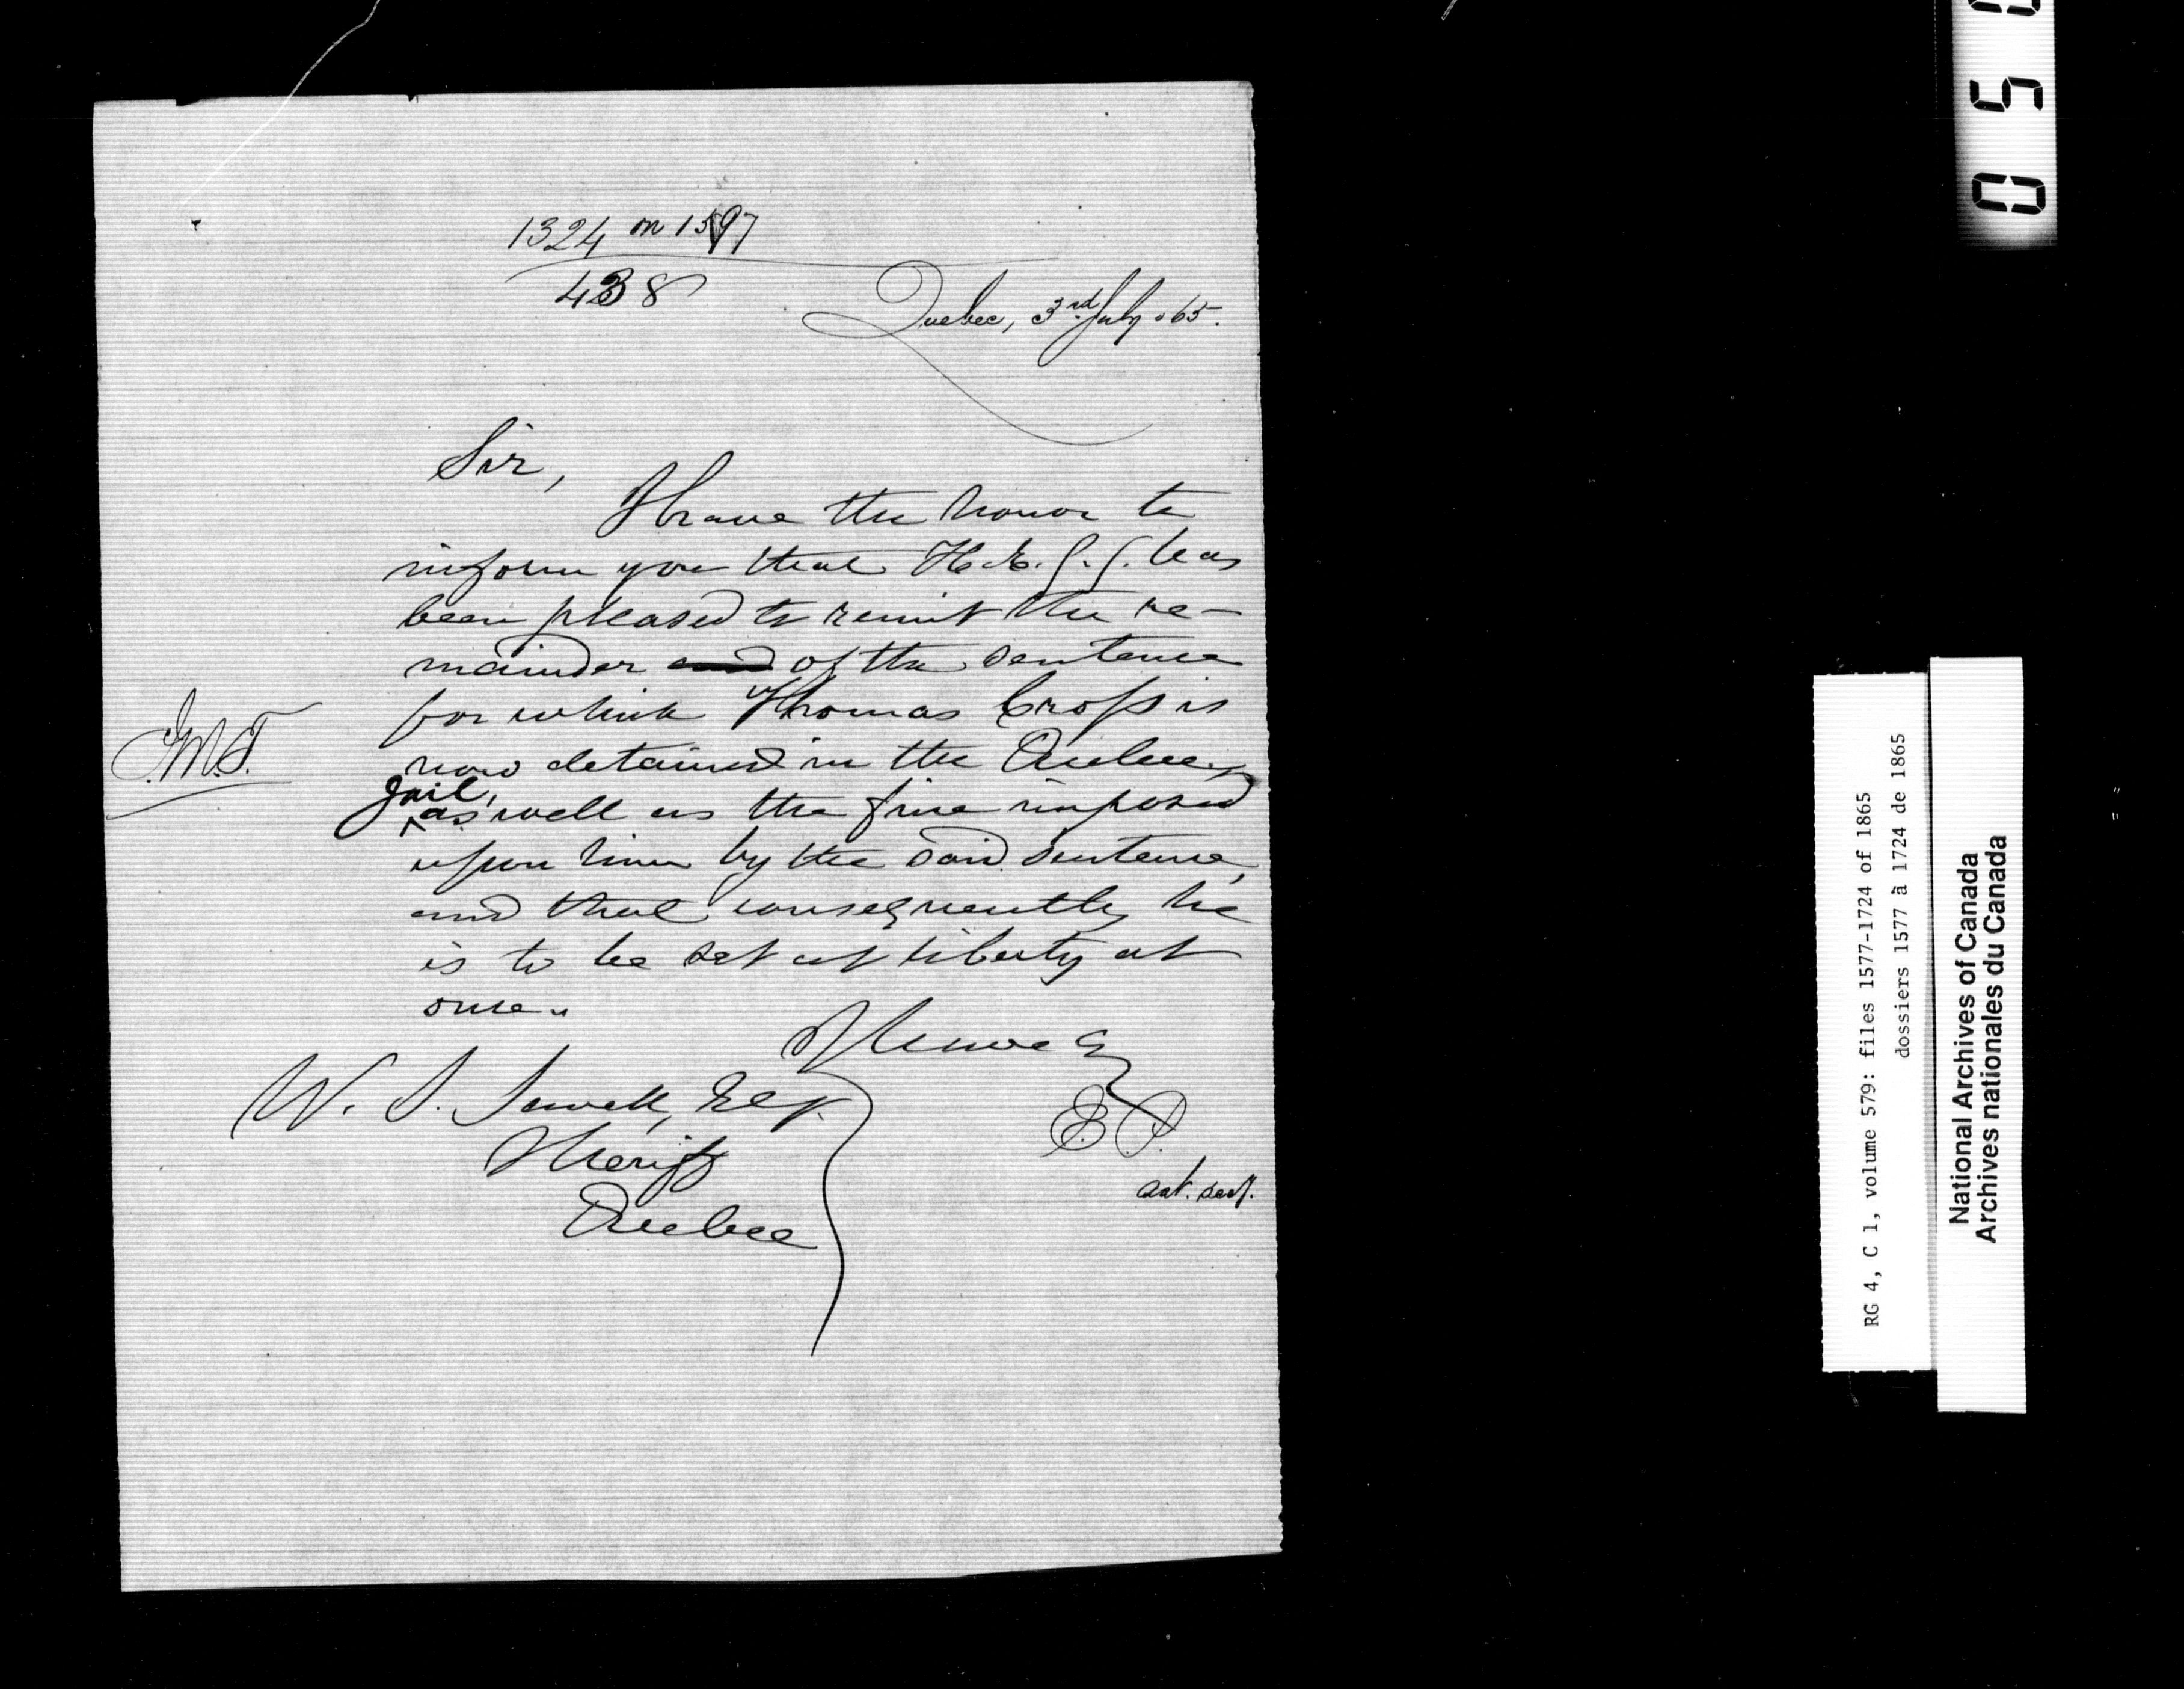 1324 on 1597
438
Quebec, 3rd July . 65.
Sir,
I have the honor to
inform you that H. E. G. G. has
been pleased to remit the re-
mainder and of the sentence
for which Thomas Cross is
J.M.T.
now detained in the Quebec
gail,
as well as the fine imposed
upon him by the said sentence,
and that consequently he
is to be set at liberty at
once.
I have &
W. S. Sewell, Esq.
Sheriff
Quebec
E. P.
ast. secy.
0 5 0
RG 4, C 1, volume 579: files 1577-1724 of 1865
dossiers 1577 à 1724 de 1865
National Archives of Canada
Archives nationales du Canada